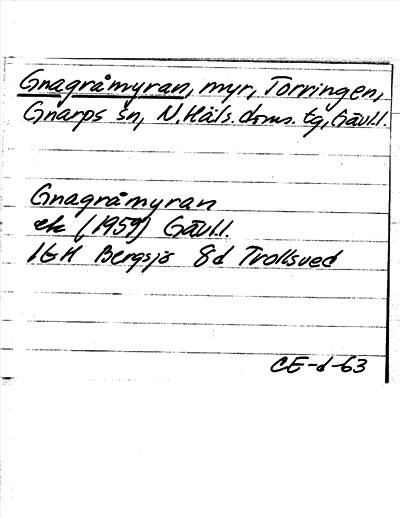 Gnagråmyran, myr, Torringen,
Gnarps sn, N.Häls. doms. tg, Gävl.l.
Gnagråmyran
ek (1959) Gävl.l.
16H Bergsjö 8d Trollsved
CE-d-63